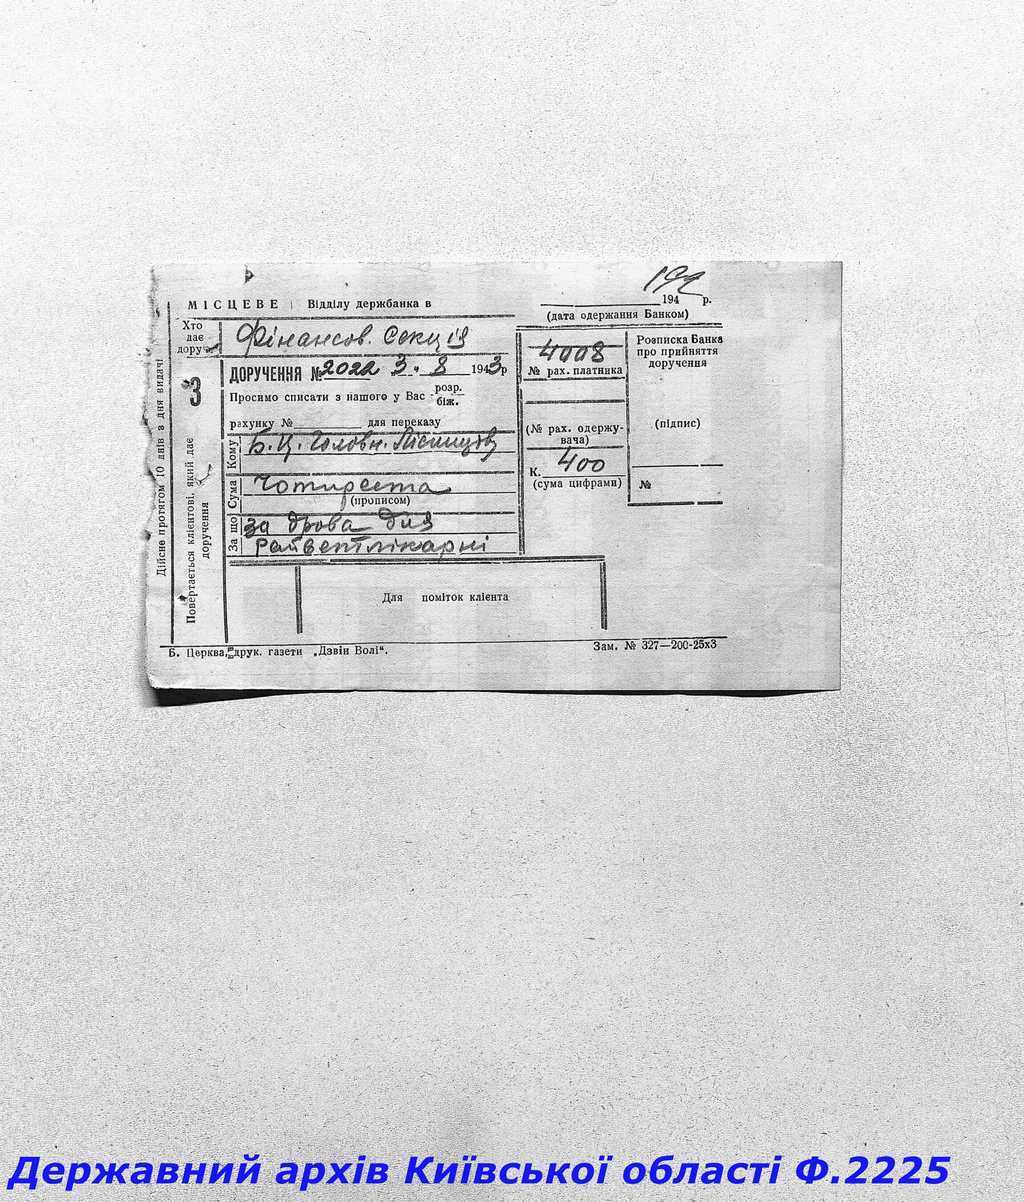 199
МІСЦЕВЕ Відділу держбанка в
194 р.
(дата одержання Банком)
Хто дає доруч.
Фінансов. Секція
4008
№ рах. платника
Розписка Банка про прийняття доручення
ДОРУЧЕННЯ № 2022 3. 8 1943р
3
Просимо списати з нашого у Вас розр. біж.
рахунку № для переказу
(№ рах. одержувача)
(підпис)
Кому
Б.Ц. Головн. Лісництв
К. 400
(сума цифрами)
№
Сума
Чотириста
(прописом)
За що
за дрова для
Райветлікарні
Дійсне протягом 10 днів з дня видачі
Повертається клієнтові, який дає доручення
Для поміток клієнта
Б. Церква, друк. газети „Дзвін Волі“.
Зам. № 327—200-25х3
Державний архів Київської області Ф.2225